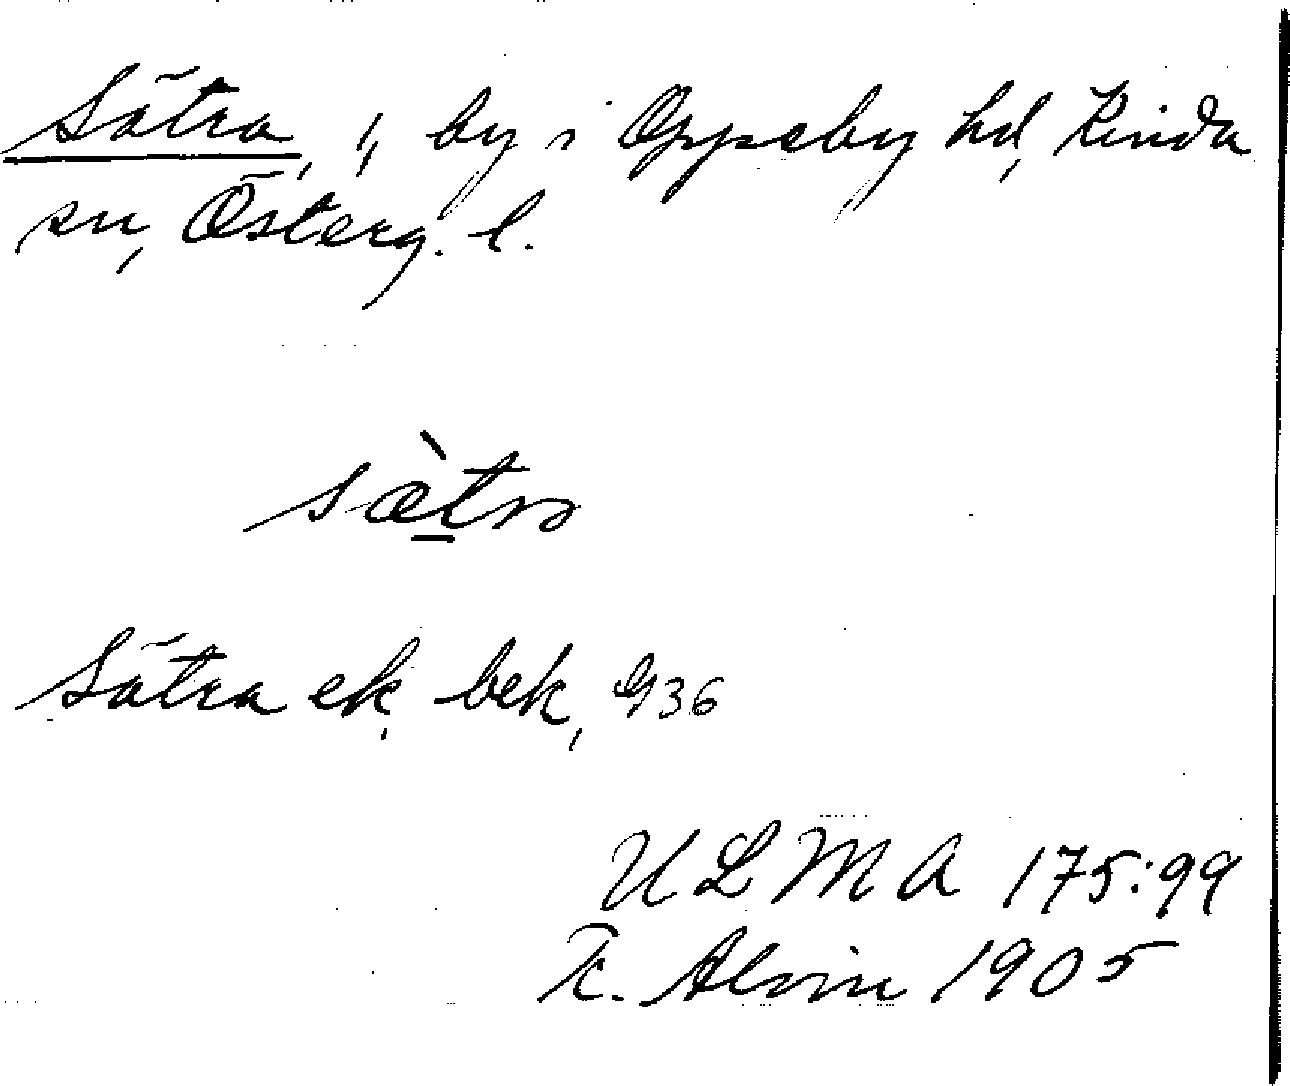 Sätra, 1, by i Oppeby hd, Kinda
sn, Österg. l.
sæ̀tra
Sätra ek. bek, G36
ULMA 175:99
K. Alvin 1905